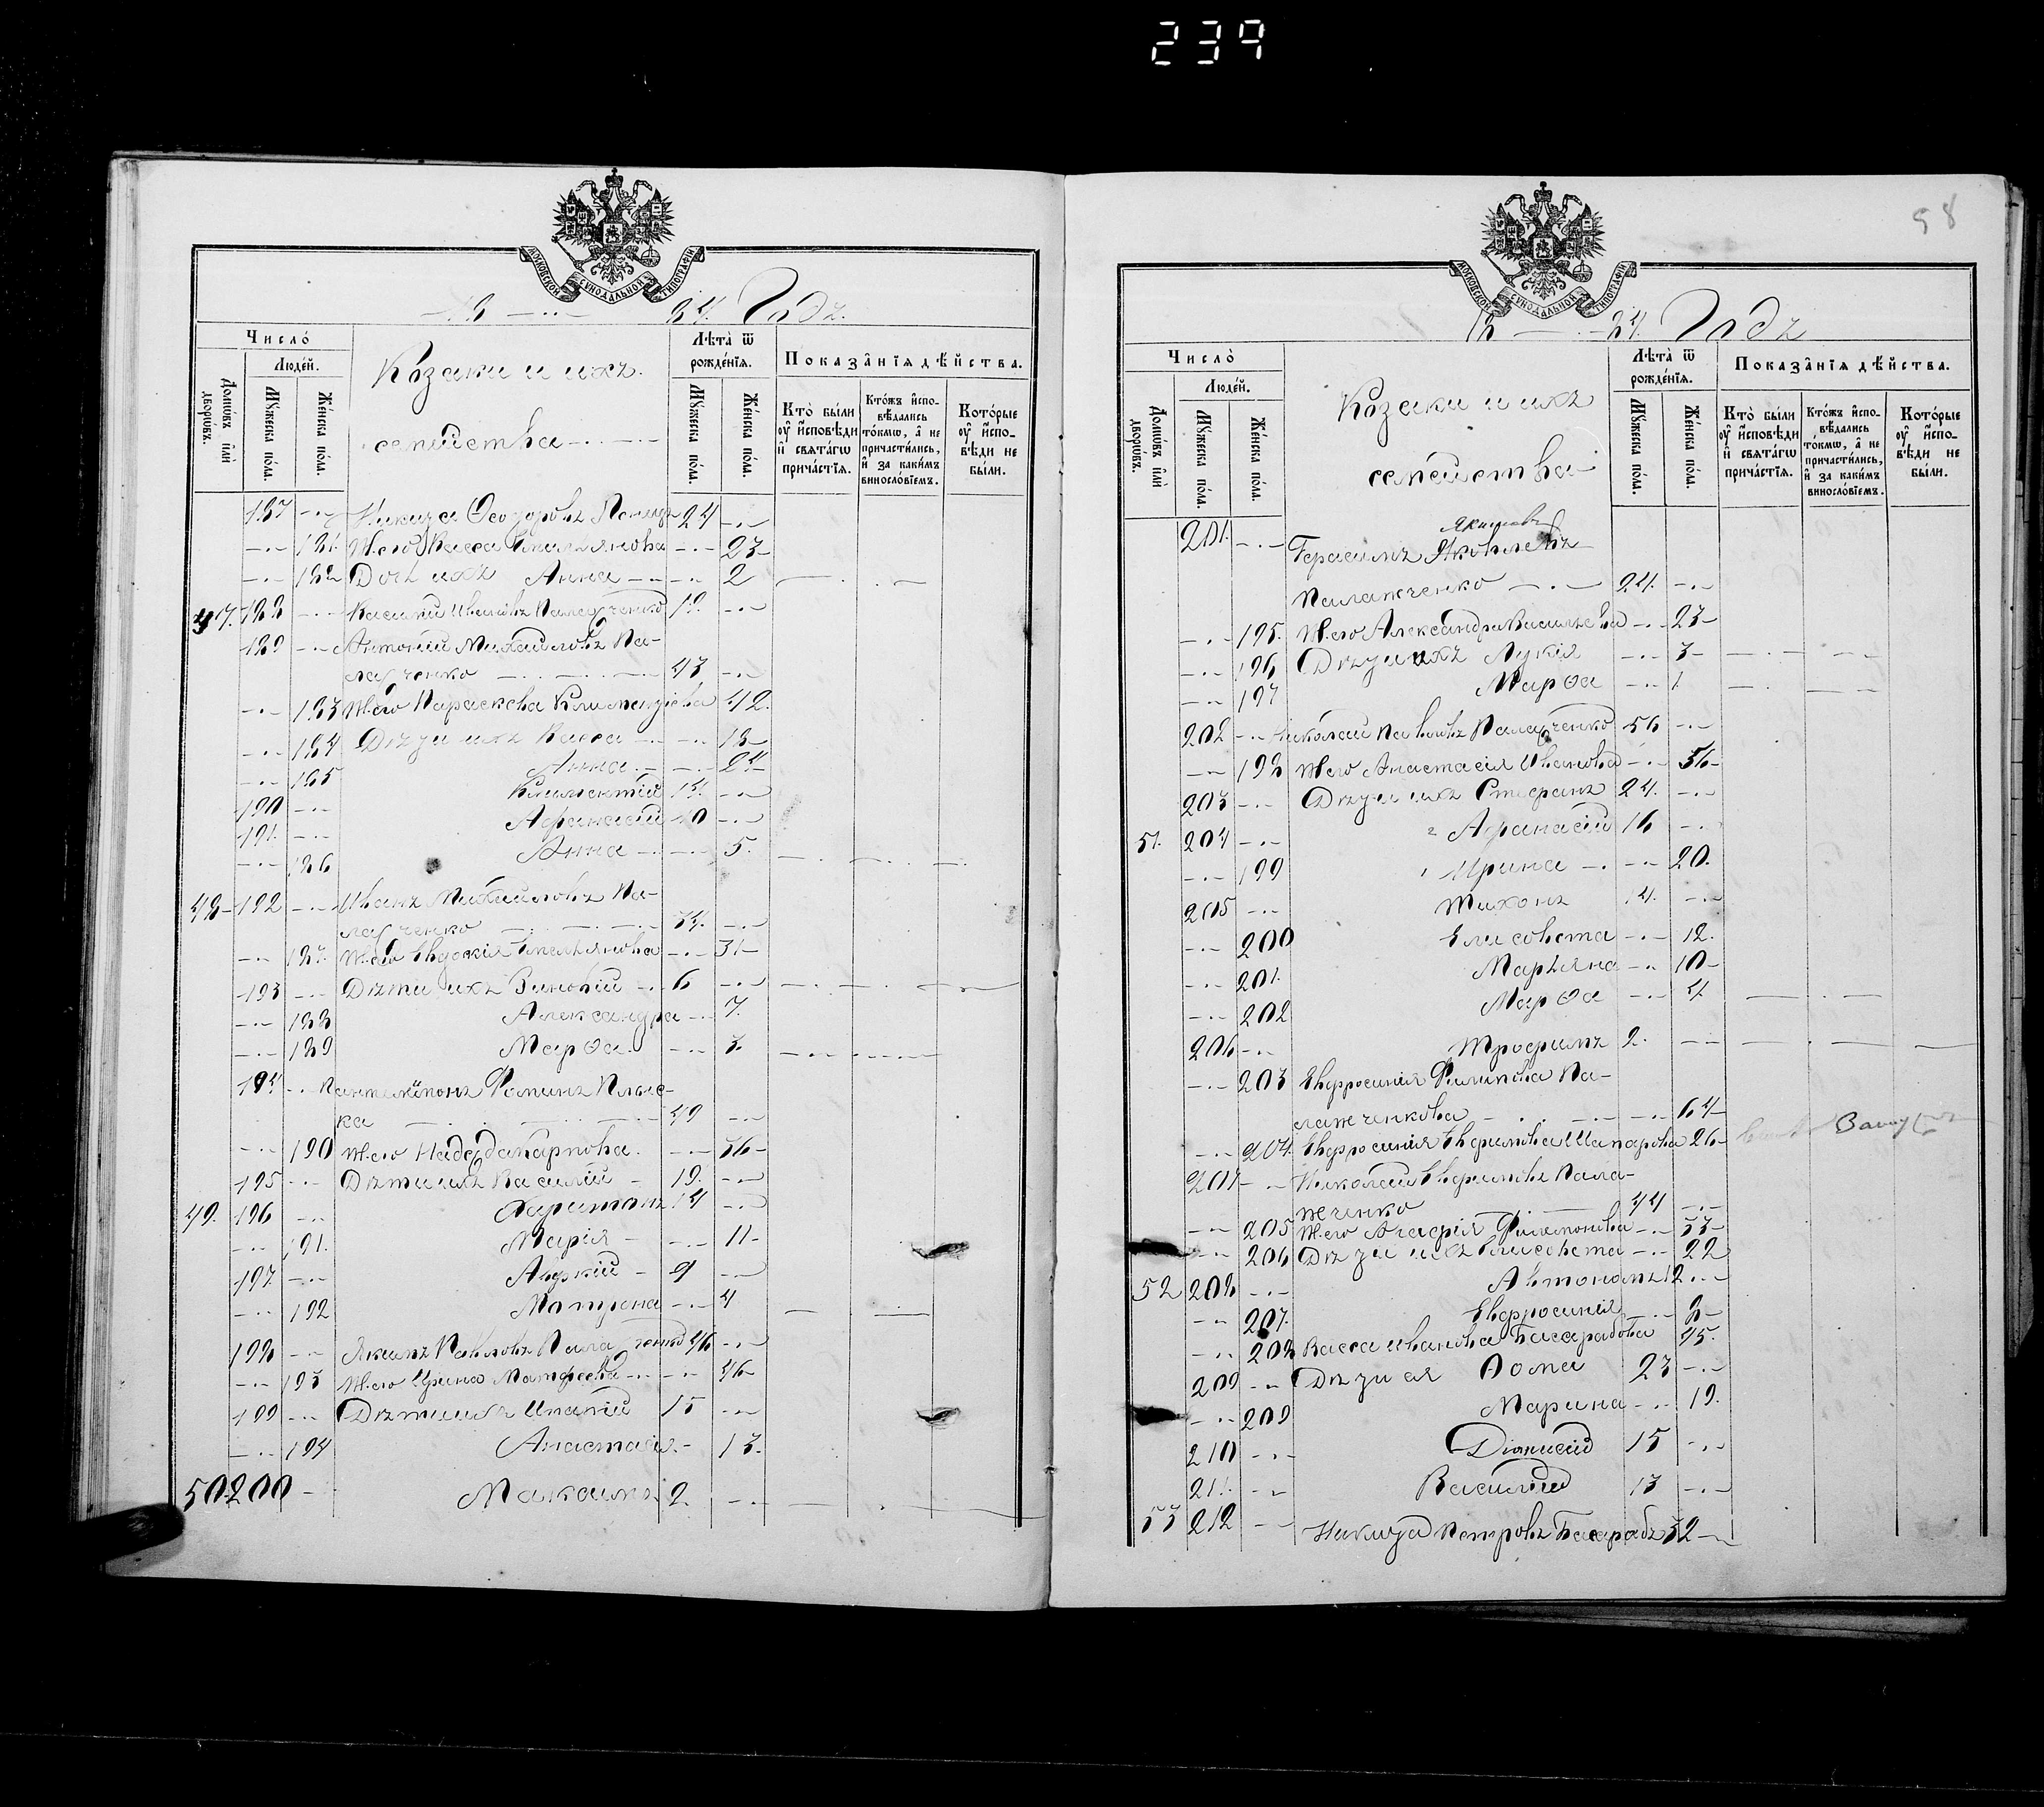 239
98
МОСКОВСКОЙ СУНОДАЛЬНОЙ ТИПОГРАФІИ
Годъ.
Число̀
Людéй.
Домѡвъ и҆лѝ дворѡвъ.
Мꙋ́жеска пóла.
Жéнска пóла.
Козаки и ихъ
семейства
Лѣта̀ ѿ рождéнїѧ.
Мꙋ́жеска пóла.
Жéнска пóла.
Показа̂нїѧ дѣ́йства.
Кто̀ бы́ли оу҆ и҆сповѣ́ди и҆ свѧта́гѡ прича́стїѧ.
Кто́жъ и҆спо-вѣ́дались то́кмѡ, а҆ не причасти́лись, и҆ за каки́мъ винослóвїемъ.
Кото́рые оу҆ и҆спо-вѣ́ди не бы́ли.
187 Никита Ѳеодоровъ 24
181. Ж. его Васса Емельянова 23
182 Дочь ихъ Анна 2
47. 188 Василій Ивановъ Палажченко 19.
189 Антоній Михайловъ Па-
лажченко 43
183 Ж. его Параскева Климентіева 42.
184 Дѣти ихъ Васса 18
185 Анна
Климентій
190
191. Афанасій 10
186 Анна 5.
48 192 Иванъ Михайловъ Па-
лажченко 34.
187. Ж. его Евдокія Емельянова 31
193 Дѣти ихъ Зиновій 6
188 Александра 7.
189 Марѳа. 3.
194 Пантелеймонъ Фоминъ
ка 49
190 Ж. его Надежда Карпова. 36
195 Дѣти ихъ Василій 19.
49. 196 Харитонъ 14
191. Марія 11
197 Аврамій 9
192 Матрона 4
198 Якимъ Павловъ Палажченко 46
193 Ж. его Ирина Матфеева 46
199 Дѣти ихъ Игнатій 15
194 Анастасія 13.
50 200 Максимъ 2.
Годъ
Число̀
Людéй.
Домѡвъ и҆лѝ дворѡвъ.
Мꙋ́жеска пóла.
Жéнска пóла.
Козаки и ихъ
семейства
Лѣта̀ ѿ рождéнїѧ.
Мꙋ́жеска пóла.
Жéнска пóла.
Показа̂нїѧ дѣ́йства.
Кто̀ бы́ли оу҆ и҆сповѣ́ди и҆ свѧта́гѡ прича́стїѧ.
Кто́жъ и҆спо-вѣ́дались то́кмѡ, а҆ не причасти́лись, и҆ за каки́мъ винослóвїемъ.
Кото́рые оу҆ и҆спо-вѣ́ди не бы́ли.
Якимовъ
201. Герасимъ Яковлевъ
Палажченко 24.
195. Ж. его Александра Васильева 23
196 Дѣти ихъ Лукія 3
197 Марѳа 1
202 Николай Павловъ Палажченко 56
198 Ж. его Анастасія Иванова 56
203 Дѣти ихъ Стефанъ 24.
51. 204 Афанасій 16
199 Ирина 20.
205 Тихонъ 14.
200 Елисавета 12.
201. Марьяна 10
202 Марѳа 4
206 Трофимъ 2.
203 Евфросинія Филипова Па-
лажченкова 64
204. Евфросинія Евфимова Шапарова 26
207 Николай Евфимовъ Пала-
жченко 44
205 Ж. его Агафія Филимонова 33
206 Дѣти ихъ Елисавета 22
52 208 Автономъ 12
207. Евфросинія 8
208 Васса Иванова Басарабова 45.
209 Дѣти ея Ѳома 23
209 Марина 19.
210 Діонисій 15
211. Василій 13
53 212 Никита Петровъ Басарабъ 32